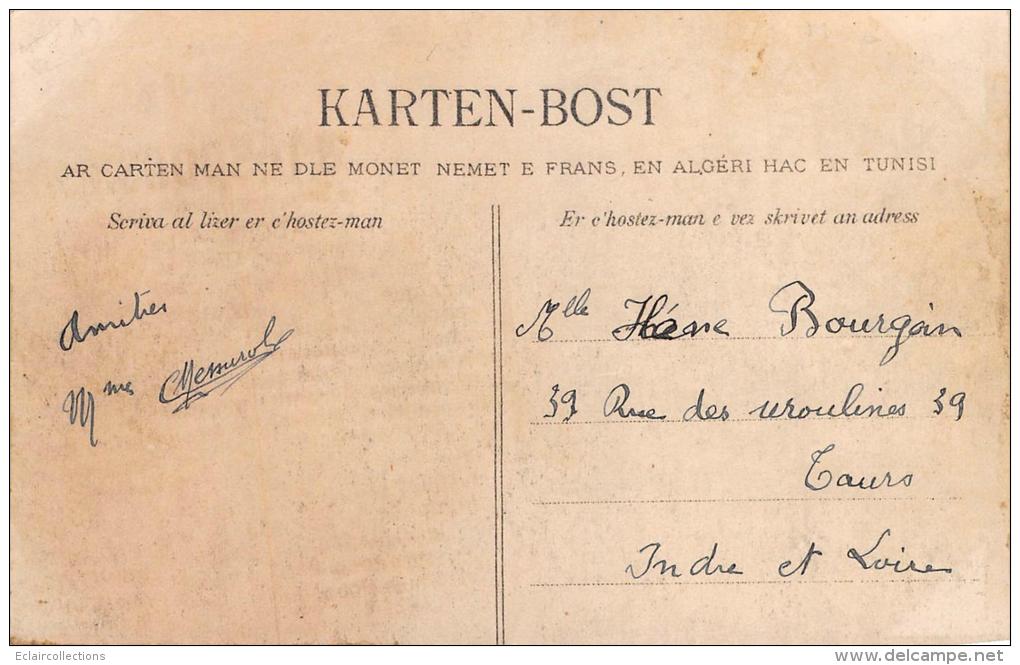 KARTEN-BOST
AR CARTEN MAN NE DLE MONET NEMET E FRANS, EN ALGÉRI HAC EN TUNISI
Scriva al lizer er c'hostez-man
Er c'hostez-man e vez skrivet an adress
Amitiés
Mmes
Mlle Bourgoin
39 Rue des Ursulines 39
Tours
Indre et Loire
Eclaircollections
www.delcampe.net